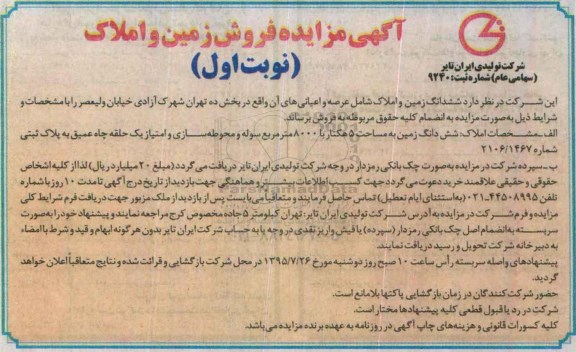 آگهی مزایده فروش زمین و املاک
(نوبت اول)
شرکت تولیدی ایران تایر
(سهامی عام) شماره ثبت: ۹۲۴۰
این شرکت در نظر دارد ششدانگ زمین و املاک شامل عرصه و اعیانی‌های آن واقع در بخش ده تهران شهرک آزادی خیابان ولیعصر را با مشخصات و
شرایط ذیل به‌صورت مزایده به انضمام کلیه حقوق مربوطه به فروش برساند.
الف ـ مشخصات املاک: شش دانگ زمین به مساحت ۵ هکتار با ۸۰۰۰ متر مربع سوله و محوطه‌سازی و امتیاز یک حلقه چاه عمیق به پلاک ثبتی
شماره ۲۱۰۶/۱۴۶۷
ب ـ سپرده شرکت در مزایده به‌صورت چک بانکی رمزدار در وجه شرکت تولیدی ایران تایر دریافت می‌گردد (مبلغ ۲۰ میلیارد ریال) لذا از کلیه اشخاص
حقوقی و حقیقی علاقمند خرید دعوت می‌گردد جهت کسب اطلاعات بیشتر و هماهنگی جهت بازدید از تاریخ درج آگهی تا مدت ۱۰ روز با شماره
تلفن ۴۴۵۰۸۹۹۵-۰۲۱ (به‌استثنای ایام تعطیل) تماس حاصل فرمایند و متعاقباً می‌بایست پس از بازدید از ملک مزبور جهت دریافت فرم شرایط کلی
مزایده و فرم شرکت در مزایده به آدرس شرکت تولیدی ایران تایر: تهران کیلومتر ۵ جاده مخصوص کرج مراجعه نمایند و پیشنهاد خود را به‌صورت
سربسته به‌انضمام اصل چک بانکی رمزدار (سپرده) یا فیش واریز نقدی در وجه یا به حساب شرکت ایران تایر بدون هرگونه ابهام و قید و شرط با امضاء
به دبیرخانه شرکت تحویل و رسید دریافت نمایند.
پیشنهادهای واصله سربسته رأس ساعت ۱۰ صبح روز دوشنبه مورخ ۱۳۹۵/۷/۲۶ در محل شرکت بازگشایی و قرائت شده و نتایج متعاقباً اعلان خواهد
گردید.
حضور شرکت‌کنندگان در زمان بازگشایی پاکتها بلامانع است.
شرکت در رد یا قبول قطعی کلیه پیشنهادها مختار است.
کلیه کسورات قانونی و هزینه‌های چاپ آگهی در روزنامه به عهده برنده مزایده می‌باشد.